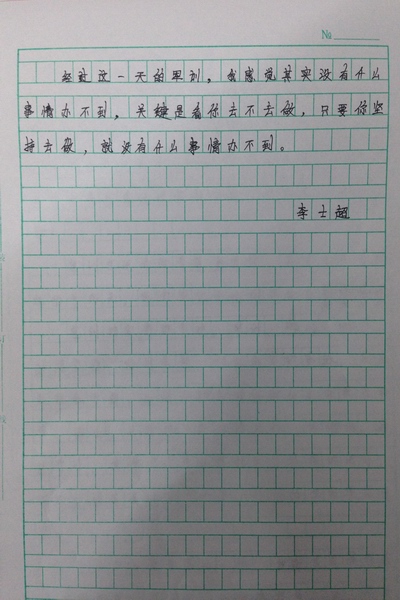 №
经过这一天的军训，我感觉其实没有什么
事情办不到，关键是看你去不去做，只要你坚
持去做，就没有什么事情办不到。
李士超